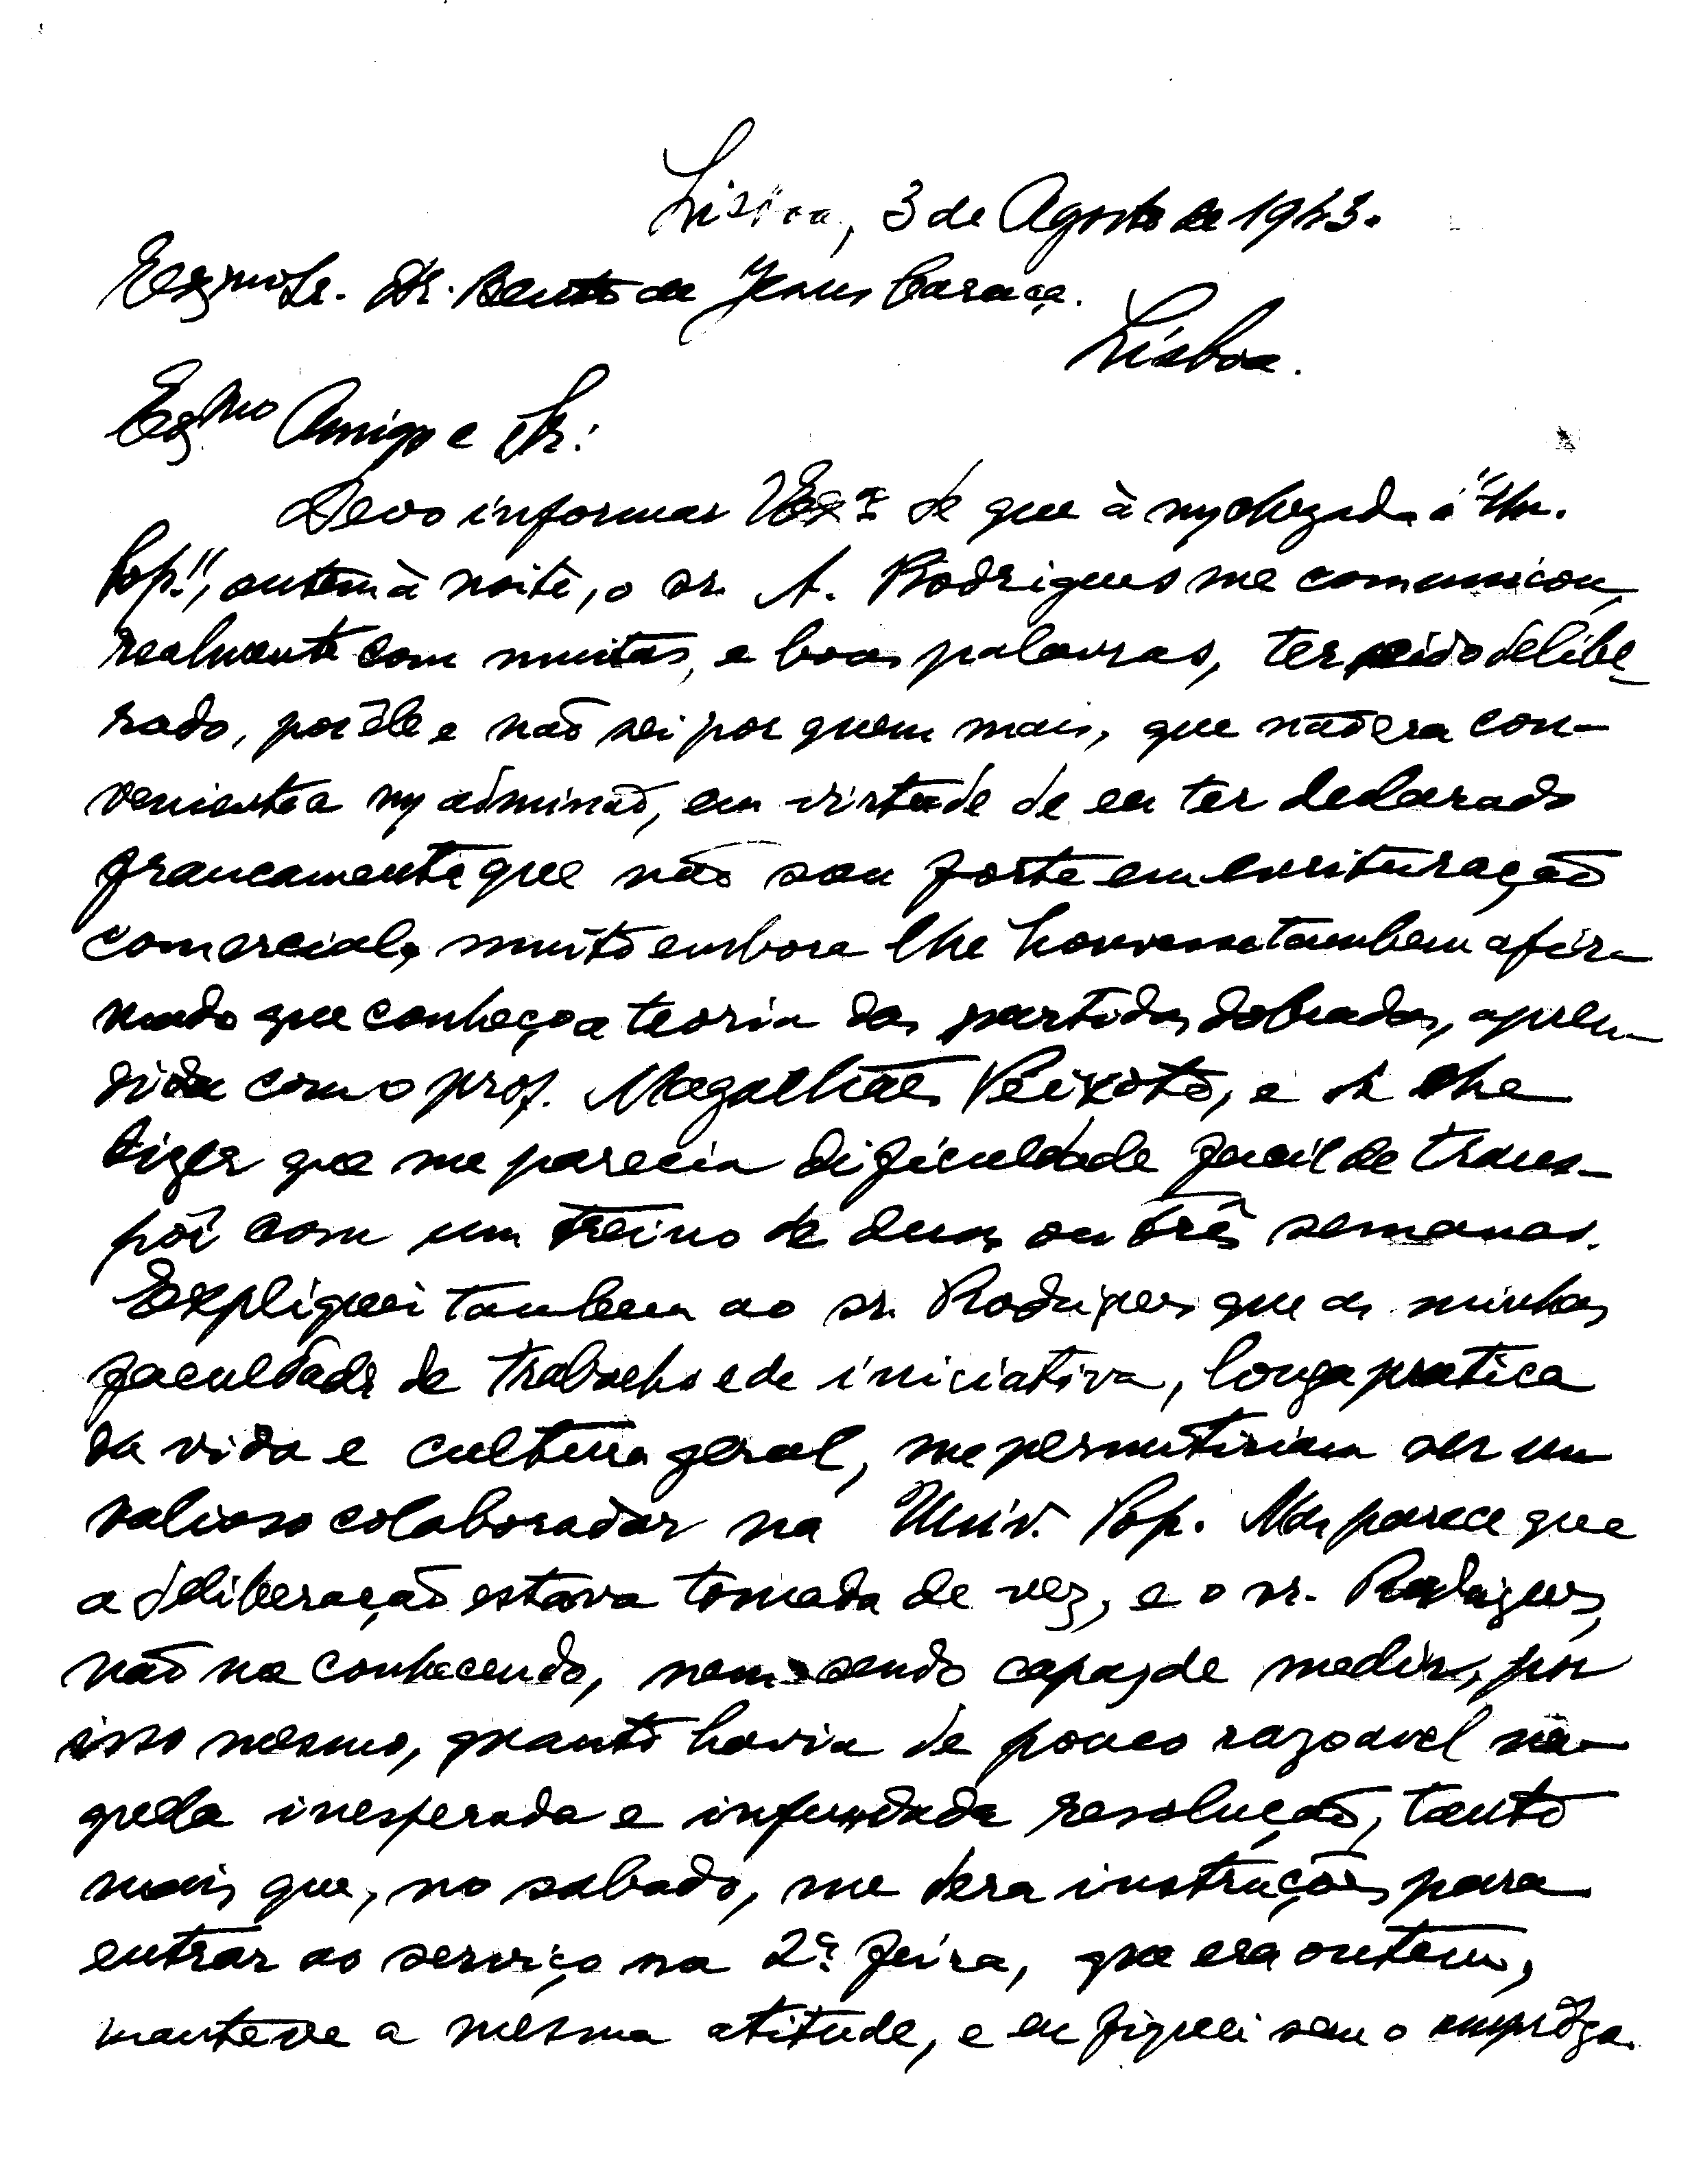 Lisboa, 3 de Agosto de 1943.
Exmo Sr. Dr. Bento de Jesus Caraça.
Lisboa.
Exmo Amigo e Sr:
Devo informar VExª de que à mª chegada á "Un.
Pop.", ontem à noite, o sr. A. Rodrigues me comunicou,
realmente com muitas, e boas palavras, ter sido delibe-
rado, por êle e não sei por quem mais, que não era con-
veniente a mª admissão, em virtude de eu ter declarado
francamente que não sou forte em escrituração
comercial, muito embora lhe houvesse tambem afir-
mado que conheço a teoria das partidas dobradas, apren-
dida com o prof. Magalhães Peixoto, e lhe
dizer que me parecia dificuldade facil de trans-
pôr com um treino de duas ou três semanas.
Expliquei tambem ao sr. Rodrigues que as minhas
faculdades de trabalho e de iniciativa, longa pratica
da vida e cultura geral, me permitiriam ser um
valioso colaborador na Univ. Pop. Mas parece que
a deliberação estava tomada de vez, e o sr. Rodrigues,
não me conhecendo, nem sendo capaz de medir, por
isso mesmo, quanto havia de pouco razoavel na-
quela inesperada e infundada resolução, tanto
mais que, no sabado, me dera instruções para
entrar ao serviço na 2ª feira, que era ontem,
manteve a mesma atitude, e eu fiquei sem o emprêgo.